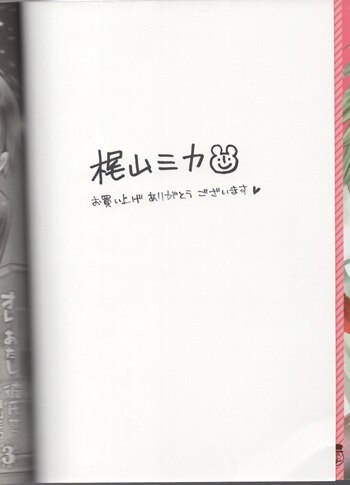 梶山ミカ
お買い上げ ありがとう ございます♥
オレ
あたし
3